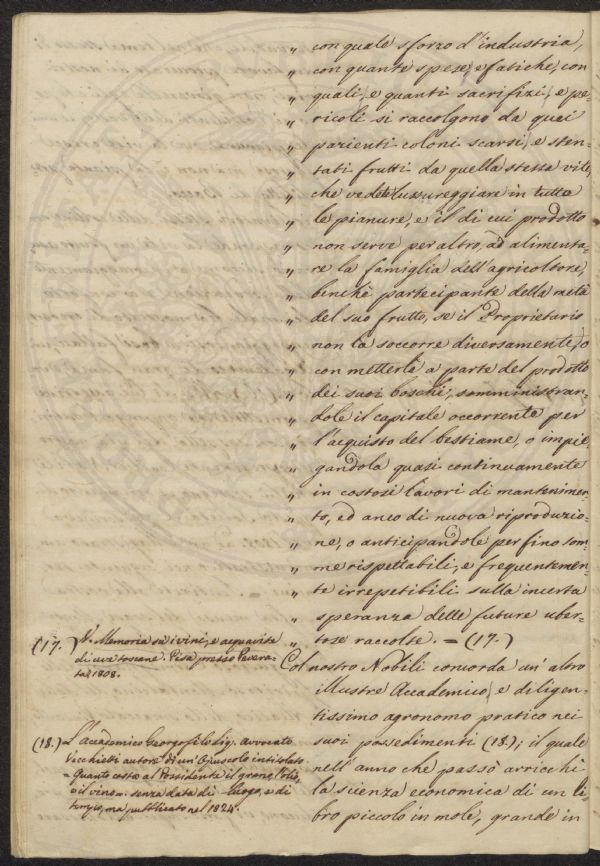 „ con quale sforzo d'industria,
„ con quante spese, e fatiche, con
„ quali, e quanti sacrifizi, e pe-
„ ricoli si raccolgono da quei
„ pazienti coloni scarsi, e sten-
„ tati frutti da quella stessa vite,
„ che vedete lussureggiare in tutte
„ le pianure, e il di cui prodotto
„ non serve per altro, ad alimenta-
„ re la famiglia dell'agricoltore,
„ benchè partecipante della metà
„ del suo frutto, se il Proprietario
„ non la soccorre diversamente, o
„ con metterle a parte del prodotto
„ dei suoi boschi, somministran-
„ dole il capitale occorrente per
„ l'acquisto del bestiame, o impie-
„ gandola quasi continuamente
„ in costosi lavori di mantenimen-
„ to, ed anco di nuova riproduzio-
„ ne, o anticipandole per fino som-
„ me rispettabili, e frequentemen-
„ te irrepetibili sulla incerta
„ speranza delle future uber-
„ tose raccolte. = (17.)
Col nostro Nobili concorda un' altro
illustre Accademico, e diligen-
tissimo agronomo pratico nei
suoi possedimenti (18.); il quale
nell' anno che passò arricchì
la scienza economica di un li-
bro piccolo in mole, grande in
(17.) V. Memoria su i vini, e acquavite
di uve toscane. Pisa presso Pevera-
ta 1808.
(18.) L'Accademico Georgofilo Sig. avvocato
Vecchietti autore di un' Opuscolo intitolato
= Quanto costa al Possidente il grano, l'olio,
o il vino = senza data di luogo, e di
tempo, ma pubblicato nel 1824.